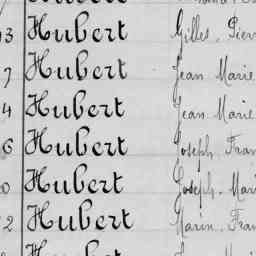 3 Hubert Gilles. Pier
7 Hubert Jean Marie
4 Hubert Jean Marie
6 Hubert Joseph Fran
0 Hubert Joseph. Mari
2 Hubert Marin. Fran